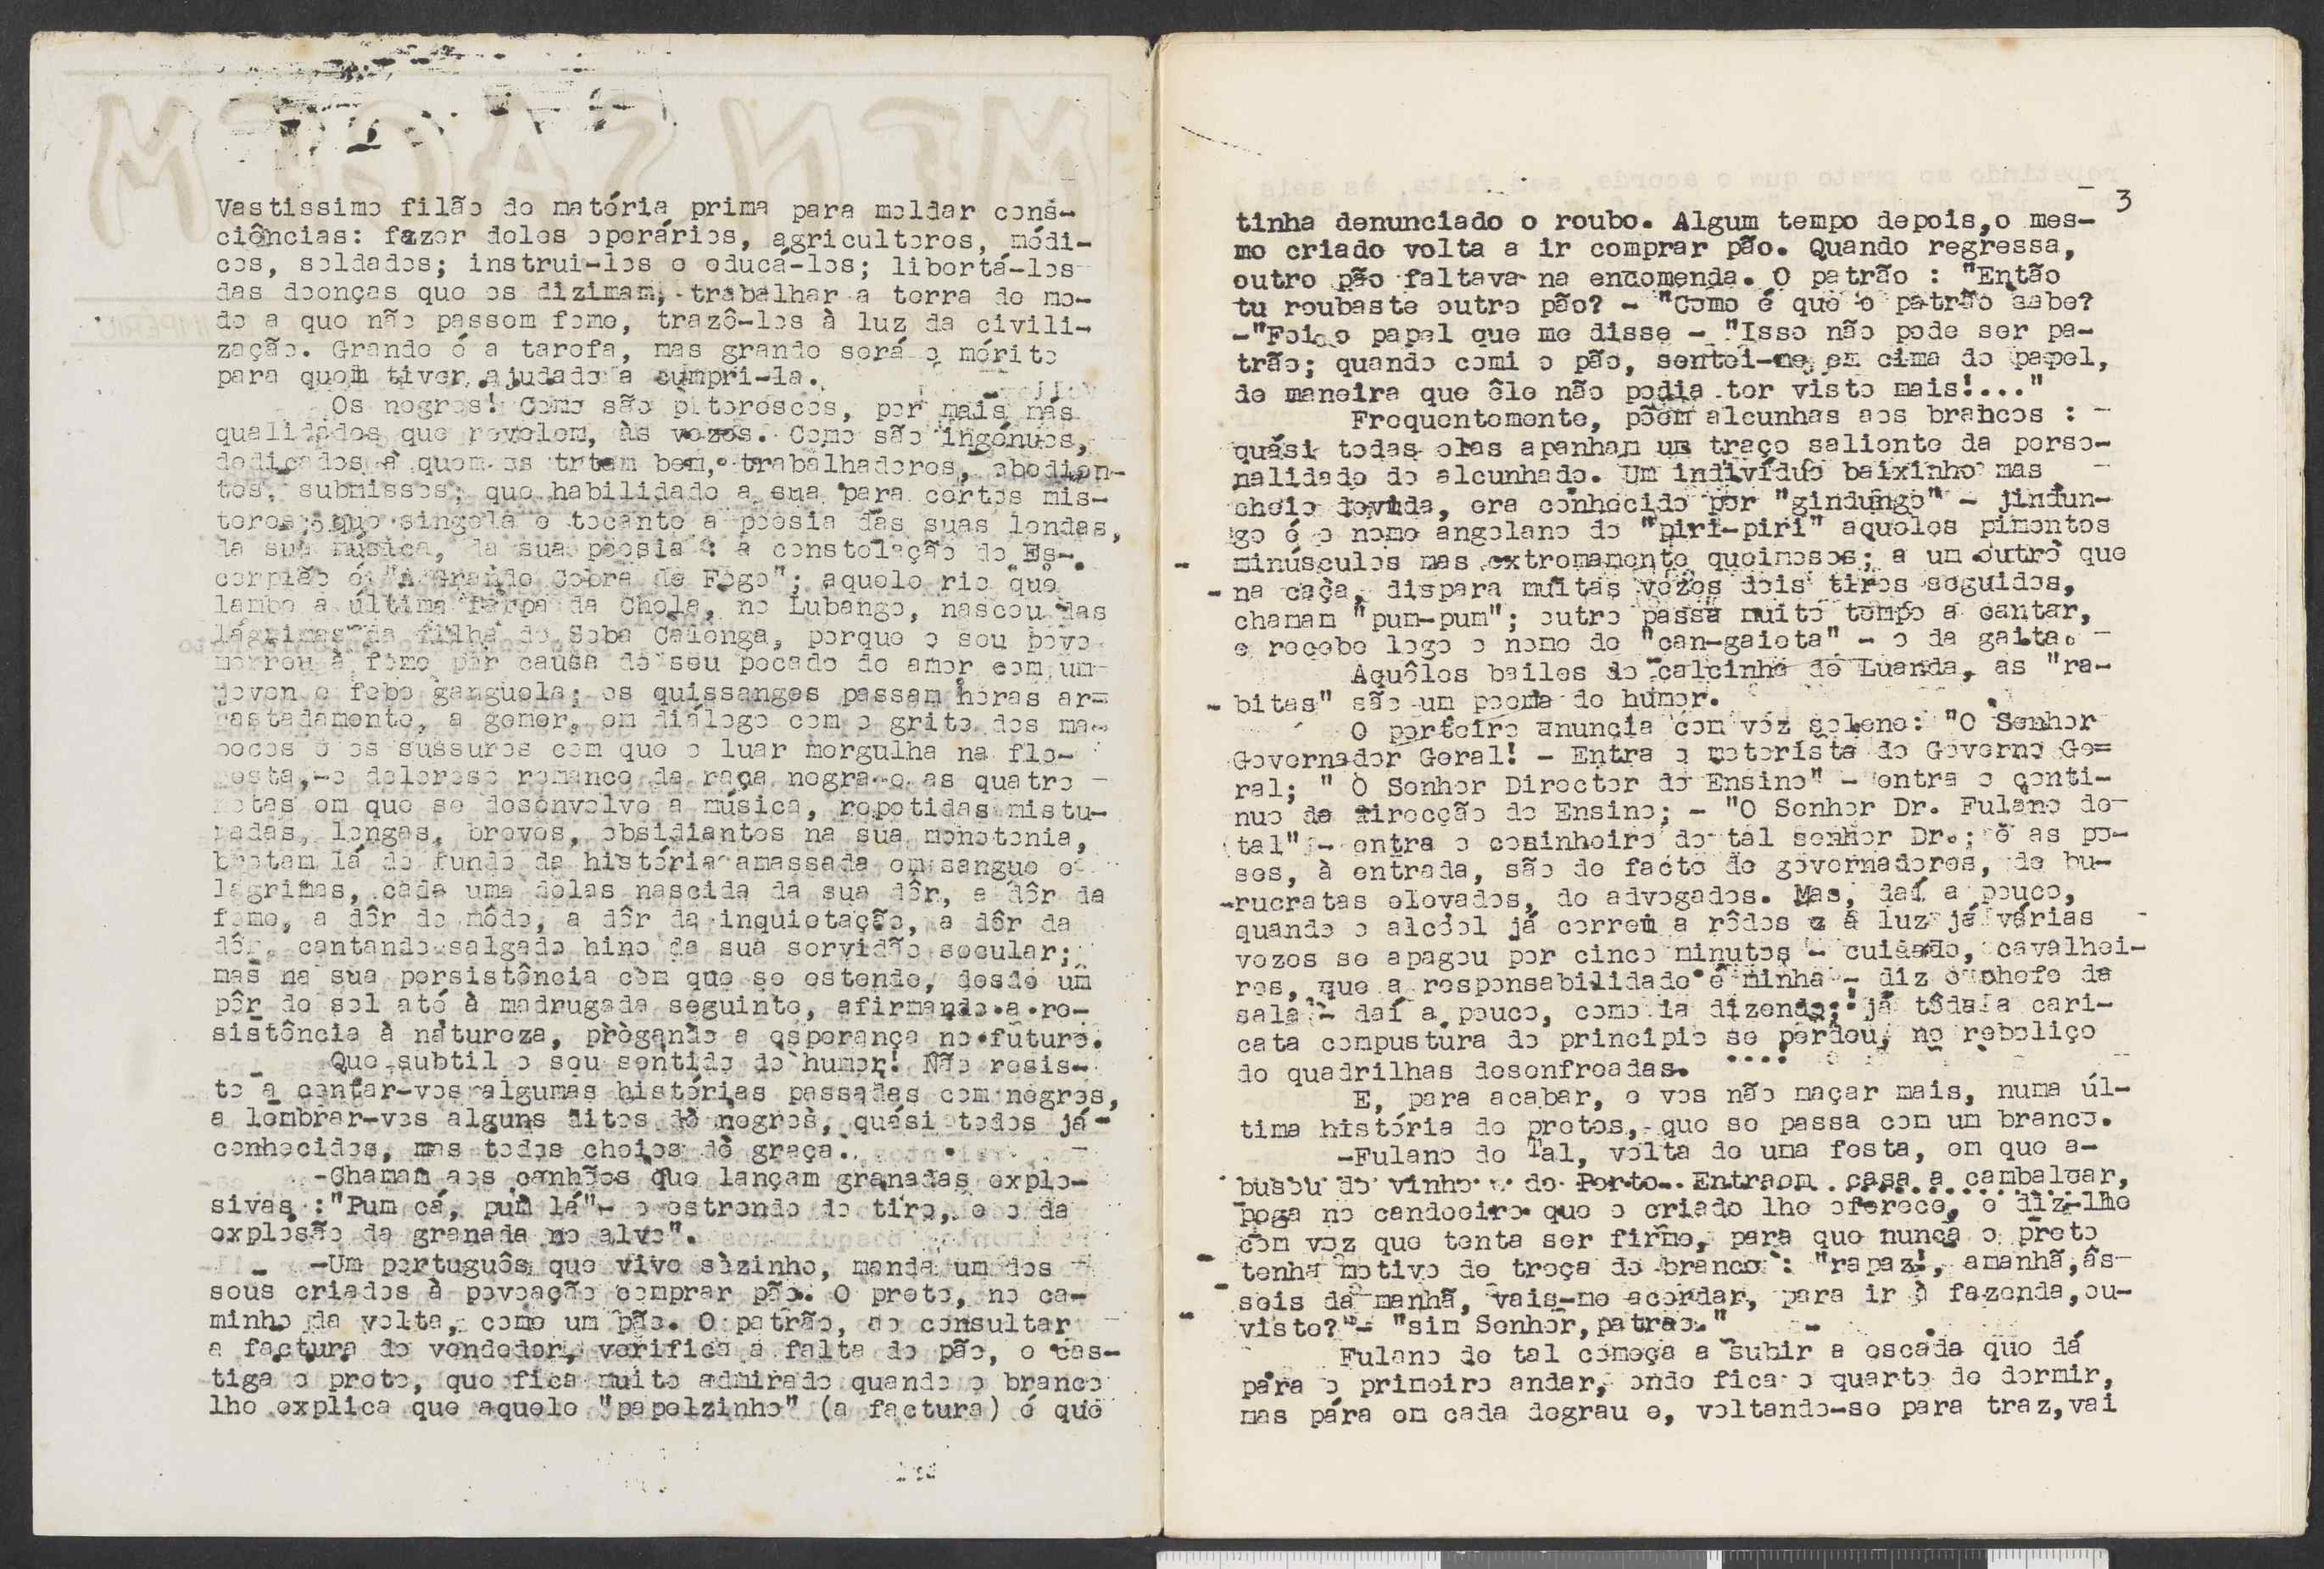 2
Vastissimo filão de matéria prima para moldar cons-
ciências: fazer deles operários, agricultores, médi-
cos, soldados; instrui-los e educá-los; libertá-los
das doenças que os dizimam, trabalhar a terra de mo-
do a que não passem fome, trazê-los à luz da civili-
zação. Grande é a tarefa, mas grande será o mérito
para quem tiver ajudado a cumpri-la.
Os negros! Como são pitorescos, por mais más
qualidades que revelem, às vezes. Como são ingénuos,
dedicados a quem os trtam bem, trabalhadores, obedien-
tes, submissos; que habilidade a sua para certos mis-
teres; que singela e tocante a poesia das suas lendas,
da sua música, da sua poesia : a constelação do Es-
corpião é "A Grande Cobra de Fogo"; aquele rio que
lambe a última farpa da Chela, no Lubango, nasceu das
lágrimas da filha do Soba Calonga, porque o seu povo
morreu à fome por causa do seu pecado de amor com um
joven e febo ganguela; os quissanges passam horas ar-
rastadamente, a gemer, em diálogo com o grito dos ma-
cocos e os sussuros com que o luar mergulha na flo-
resta,-o doloroso romance da raça negra e as quatro
notas em que se desenvolve a música, repetidas mistu-
radas, longas, breves, obsidiantes na sua monotonia,
brotam lá do fundo da história amassada em sangue e
lágrimas, cada uma delas nascida da sua dôr, a dôr da
fome, a dôr do mêdo, a dôr da inquietação, a dôr da
dôr, cantando salgado hino da sua servidão secular;
mas na sua persistência com que se estende, desde um
pôr do sol até à madrugada seguinte, afirmando a re-
sistência à natureza, prègando a esperança no futuro.
Que subtil o seu sentido do humor! Não resis-
to a contar-vos algumas histórias passadas com negros,
a lembrar-vos alguns ditos de negros, quási todos já
conhecidos, mas todos cheios de graça.
-Chamam aos canhões que lançam granadas explo-
sivas :"Pum cá, pum lá"- o estrondo do tiro, e o da
explosão da granada no alvo".
-Um português que vive sòzinho, manda um dos
seus criados à povoação comprar pão. O preto, no ca-
minho da volta, come um pão. O patrão, ao consultar
a factura do vendedor, verifica a falta do pão, e cas-
tiga o preto, que fica muito admirado quando o branco
lhe explica que aquele "papelzinho" (a factura) é que
3
tinha denunciado o roubo. Algum tempo depois,o mes-
mo criado volta a ir comprar pão. Quando regressa,
outro pão faltava na encomenda. O patrão : "Então
tu roubaste outro pão? - "Como é que o patrão sabe?
-"Foi o papel que me disse - "Isso não pode ser pa-
trão; quando comi o pão, sentei-me em cima do papel,
de maneira que êle não podia ter visto mais!..."
Frequentemente, põem alcunhas aos brancos :
quási todas elas apanham um traço saliente da perso-
nalidade do alcunhado. Um indivíduo baixinho mas
cheio de vida, era conhecido por "gindungo" - jindun-
go é o nome angolano do "piri-piri" aqueles pimentos
minúsculos mas extremamente queimosos; a um outro que
na caça, dispara muitas vezes dois tiros seguidos,
chamam "pum-pum"; outro passa muito tempo a cantar,
e recebe logo o nome de "can-gaiota" - o da gaita.
Aquêles bailes do calcinha de Luanda, as "ra-
bitas" são um poema de humor.
O porteiro anuncia com vóz solene: "O Senhor
Governador Geral! - Entra o motorista do Governo Ge=
ral; " O Senhor Director do Ensino" - entra o conti-
nuo da Direcção do Ensino; - "O Senhor Dr. Fulano de
tal" - entra o cosinheiro do tal senhor Dr.; e as po-
ses, à entrada, são de facto de governadores, de bu-
rucratas elevados, de advogados. Mas, daí a pouco,
quando o alcóol já correm a rôdos e a luz já várias
vezes se apagou por cinco minutos - cuidado, cavalhei-
ros, que a responsabilidade é minha - diz o chefe da
sala - daí a pouco, como ia dizendo; já tôda a cari-
cata compustura do principio se perdeu, no reboliço
de quadrilhas desenfreadas....!
E, para acabar, e vos não maçar mais, numa úl-
tima história de pretos, que se passa com um branco.
-Fulano de Tal, volta de uma festa, em que a-
busou do vinho do Porto. Entraem casa a cambalear,
pega no candeeiro que o criado lhe oferece, e diz-lhe
com voz que tenta ser firme, para que nunca o preto
tenha motivo de troça do branco : "rapaz!, amanhã,ás
seis da manhã, vais-me acordar, para ir à fazenda,ou-
viste?"- "sim Senhor,patrão."
Fulano de tal começa a subir a escada que dá
para o primeiro andar, onde fica o quarto de dormir,
mas pára em cada degrau e, voltando-se para traz,vai